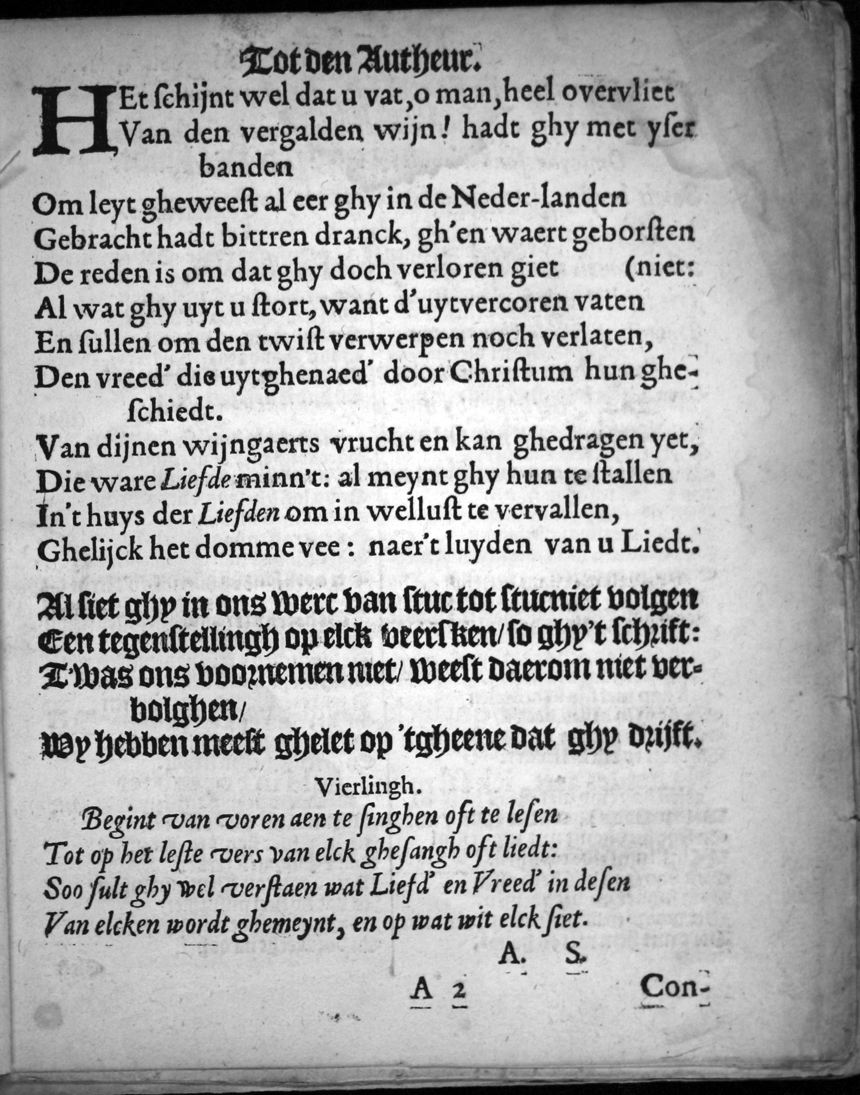 Tot den Autheur.
HEt ſchijnt wel dat u vat, o man, heel overvliet
Van den vergalden wijn! hadt ghy met yſer
banden
Om leyt gheweeſt al eer ghy in de Neder-landen
Gebracht hadt bittren dranck, gh'en waert geborſten
De reden is om dat ghy doch verloren giet (niet:
Al wat ghy uyt u ſtort, want d'uytvercoren vaten
En ſullen om den twiſt verwerpen noch verlaten,
Den vreed' die uytghenaed' door Chriſtum hun ghe-
ſchiedt.
Van dijnen wijngaerts vrucht en kan ghedragen yet,
Die ware Liefde minn't: al meynt ghy hun te ſtallen
In't huys der Liefden om in welluſt te vervallen,
Ghelijck het domme vee: naer't luyden van u Liedt.
Al ſiet ghy in ons werc van ſtuc tot ſtuc niet volgen
Een tegenſtellingh op elck veerſken/ ſo ghy't ſchrift:
T'was ons voornemen niet/ weeſt daerom niet ver-
bolghen/
Wy hebben meeſt ghelet op 'tgheene dat ghy drijft.
Vierlingh.
Begint van voren aen te ſinghen oft te leſen
Tot op het leſte vers van elck gheſangh oft liedt:
Soo ſult ghy wel verſtaen wat Liefd' en Vreed' in deſen
Van elcken wordt ghemeynt, en op wat wit elck ſiet.
A. S.
A 2 Con-